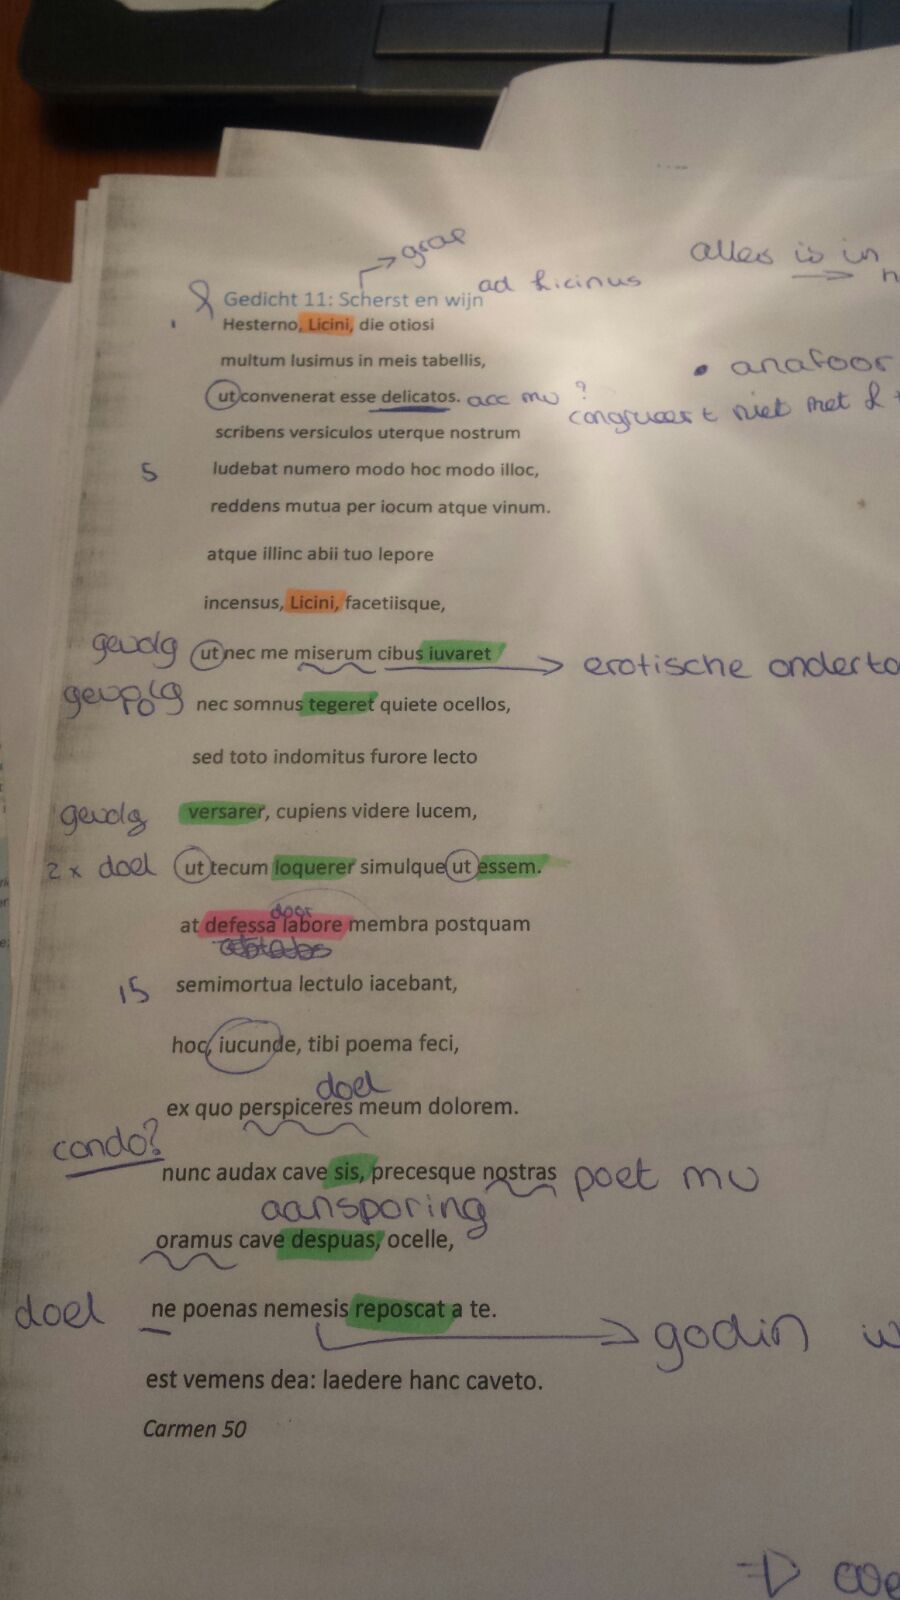 grap
ad Licinus
alles is in
Gedicht 11: Scherst en wijn
1 Hesterno, Licini, die otiosi
multum lusimus in meis tabellis,
• anafoor
ut convenerat esse delicatos. acc mv ?
congrueert niet met L
scribens versiculos uterque nostrum
5 ludebat numero modo hoc modo illoc,
reddens mutua per iocum atque vinum.
atque illinc abii tuo lepore
incensus, Licini, facetiisque,
gevolg ut nec me miserum cibus iuvaret erotische onderto
gevolg nec somnus tegeret quiete ocellos,
sed toto indomitus furore lecto
gevolg versarer, cupiens videre lucem,
2 x doel ut tecum loquerer simulque ut essem.
door
at defessa labore membra postquam
15 semimortua lectulo iacebant,
hoc, iucunde, tibi poema feci,
doel
ex quo perspiceres meum dolorem.
condo?
nunc audax cave sis, precesque nostras poet mv
aansporing
oramus cave despuas, ocelle,
doel ne poenas nemesis reposcat a te.
godin
est vemens dea: laedere hanc caveto.
Carmen 50